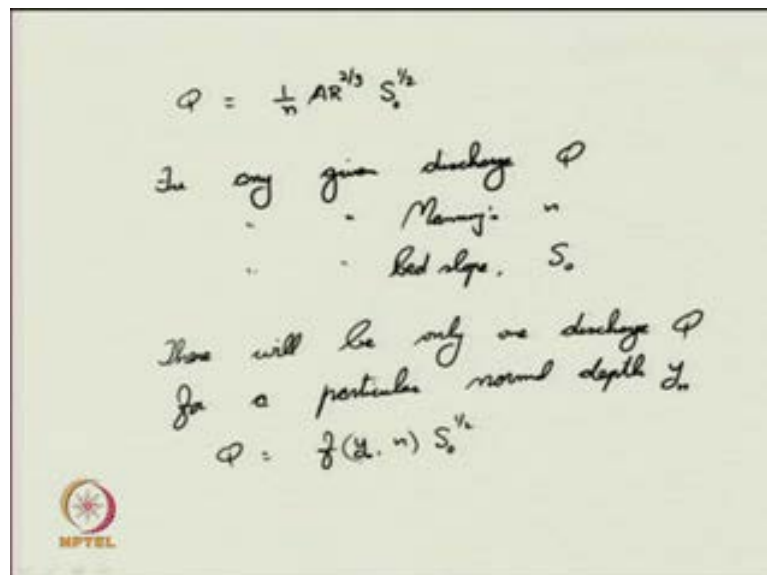 Q = 1/n AR^2/3 S₀^1/2
For any given discharge Q
" " Manning's n
" " bed slope. S₀
There will be only one discharge Q
for a particular normal depth yₙ
Q = f(y, n) S₀^1/2
NPTEL